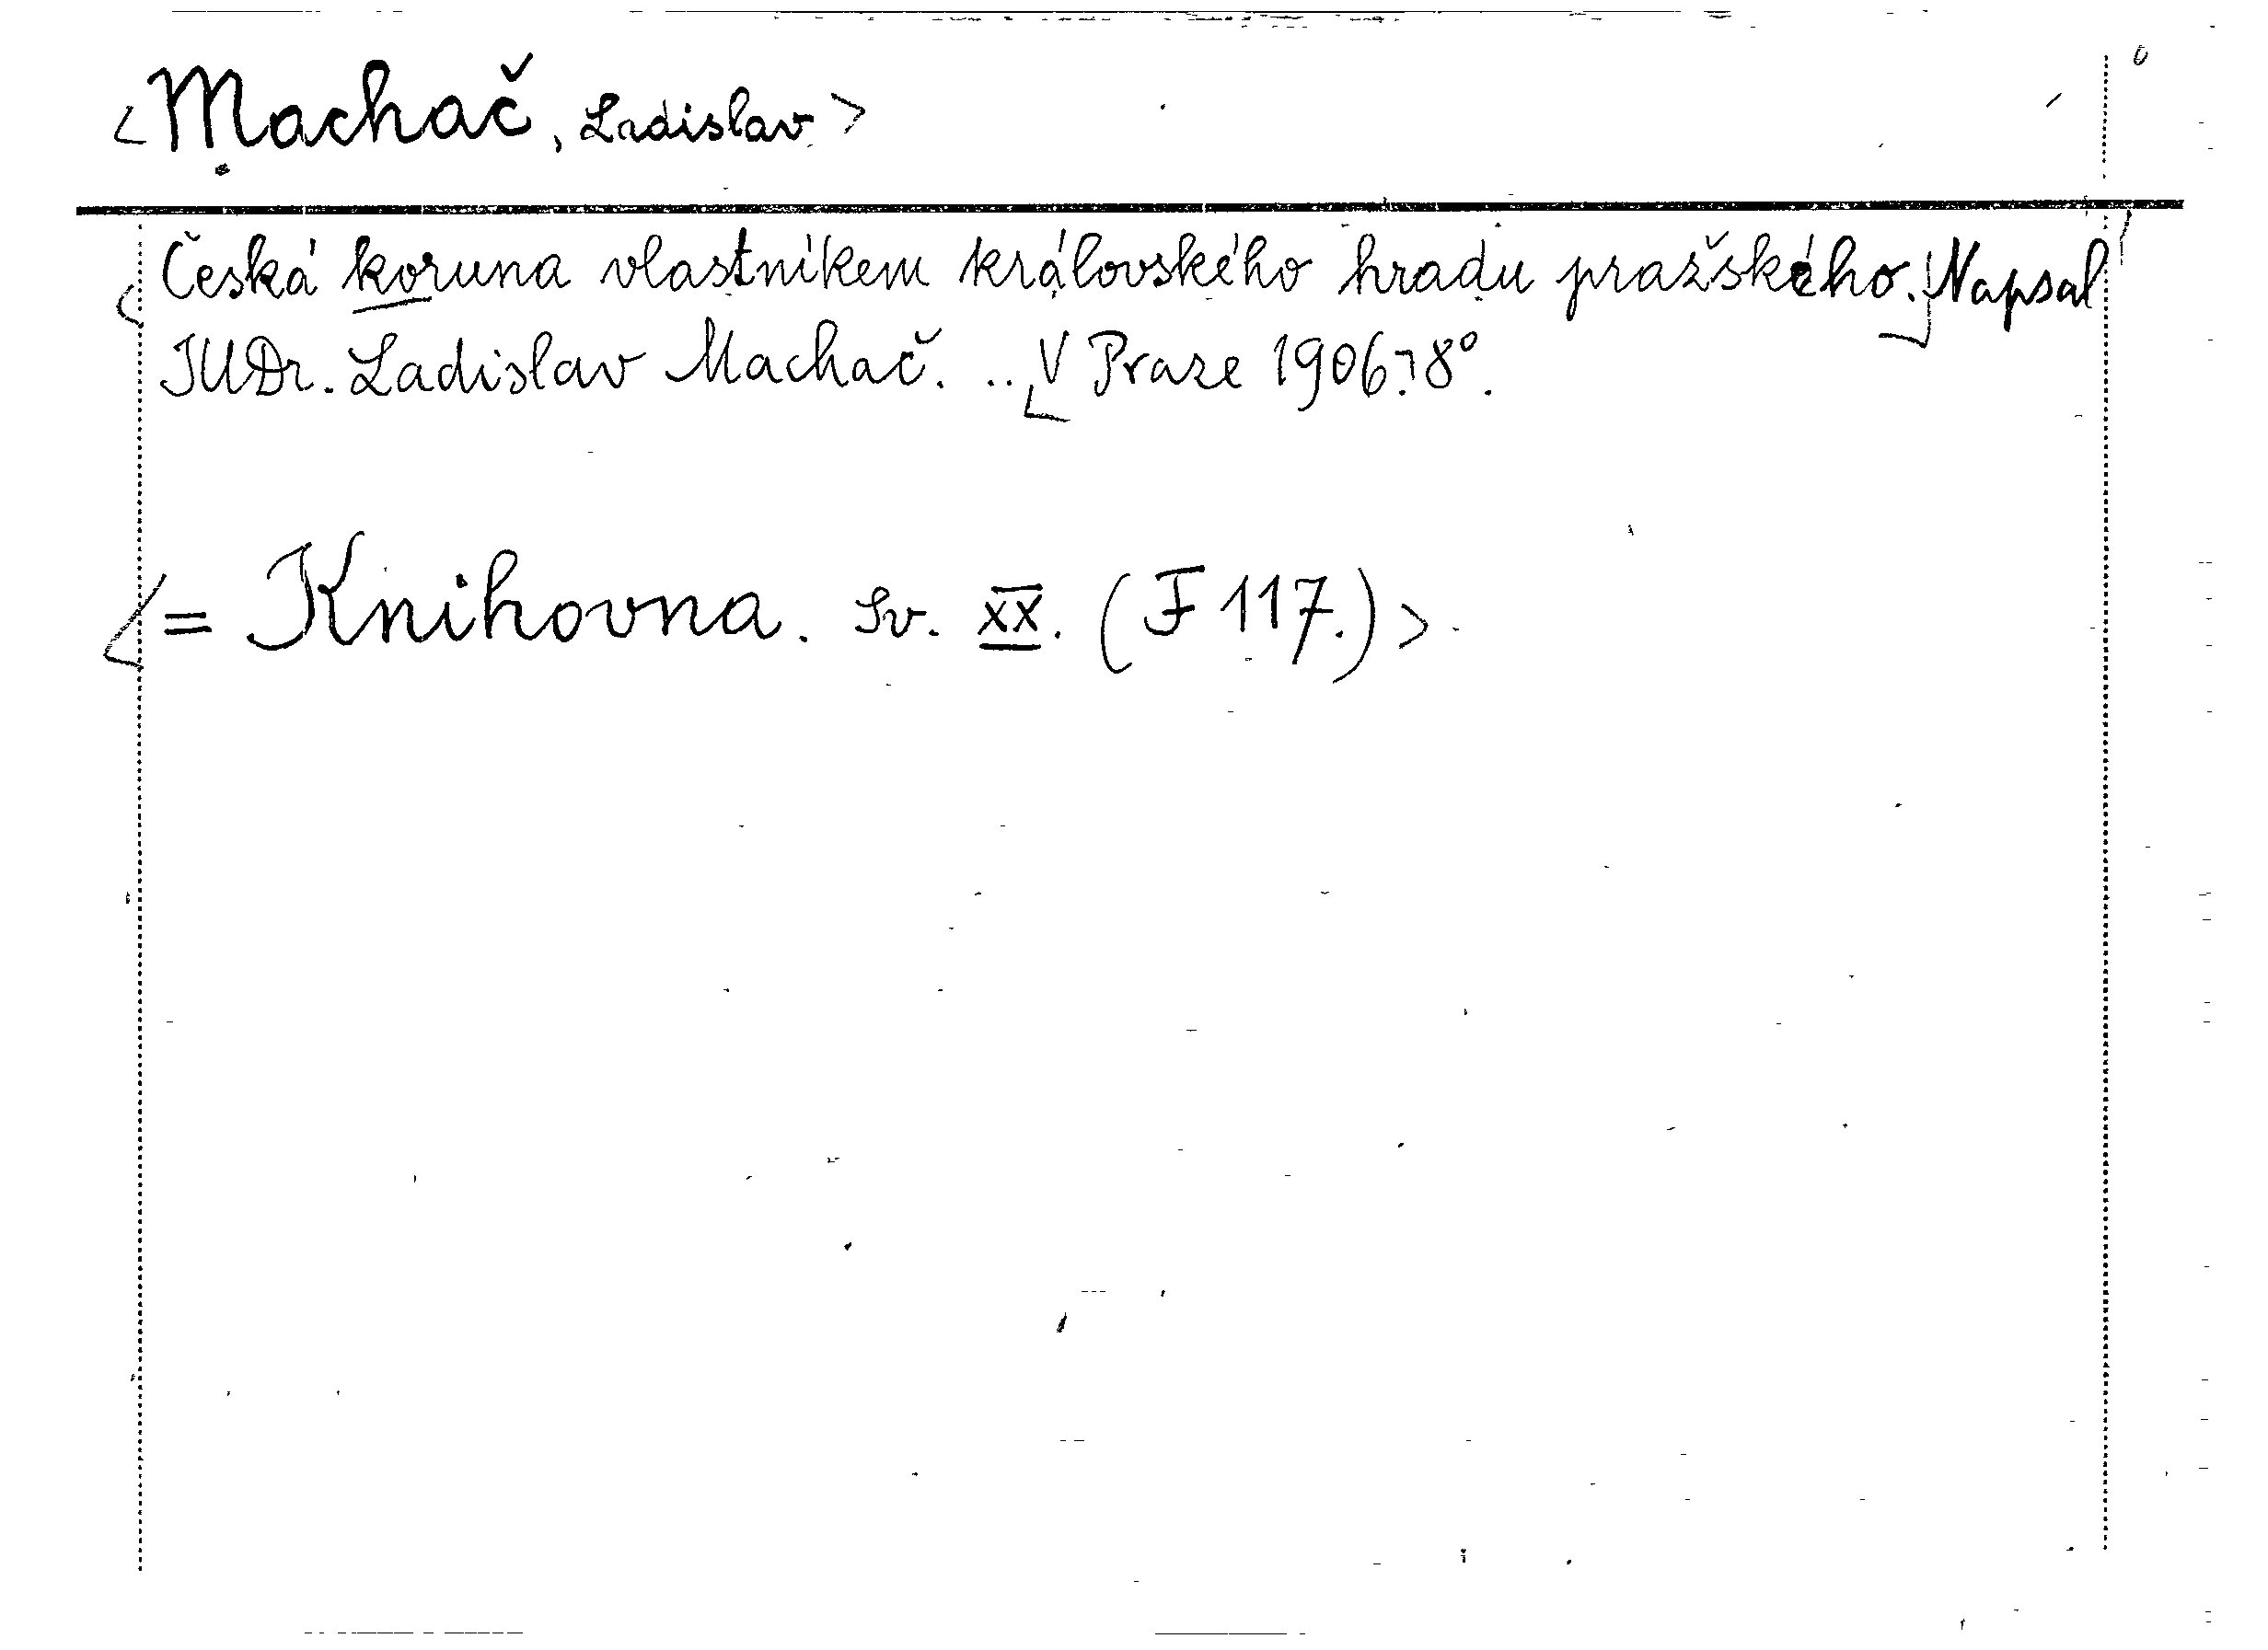 <Machač, Ladislav>
Česká koruna vlastníkem královského hradu pražského. Napsal
JUDr. Ladislav Machač. .. V Praze 1906. 8°.
<= Knihovna. Sv. XX. (F 117.)>